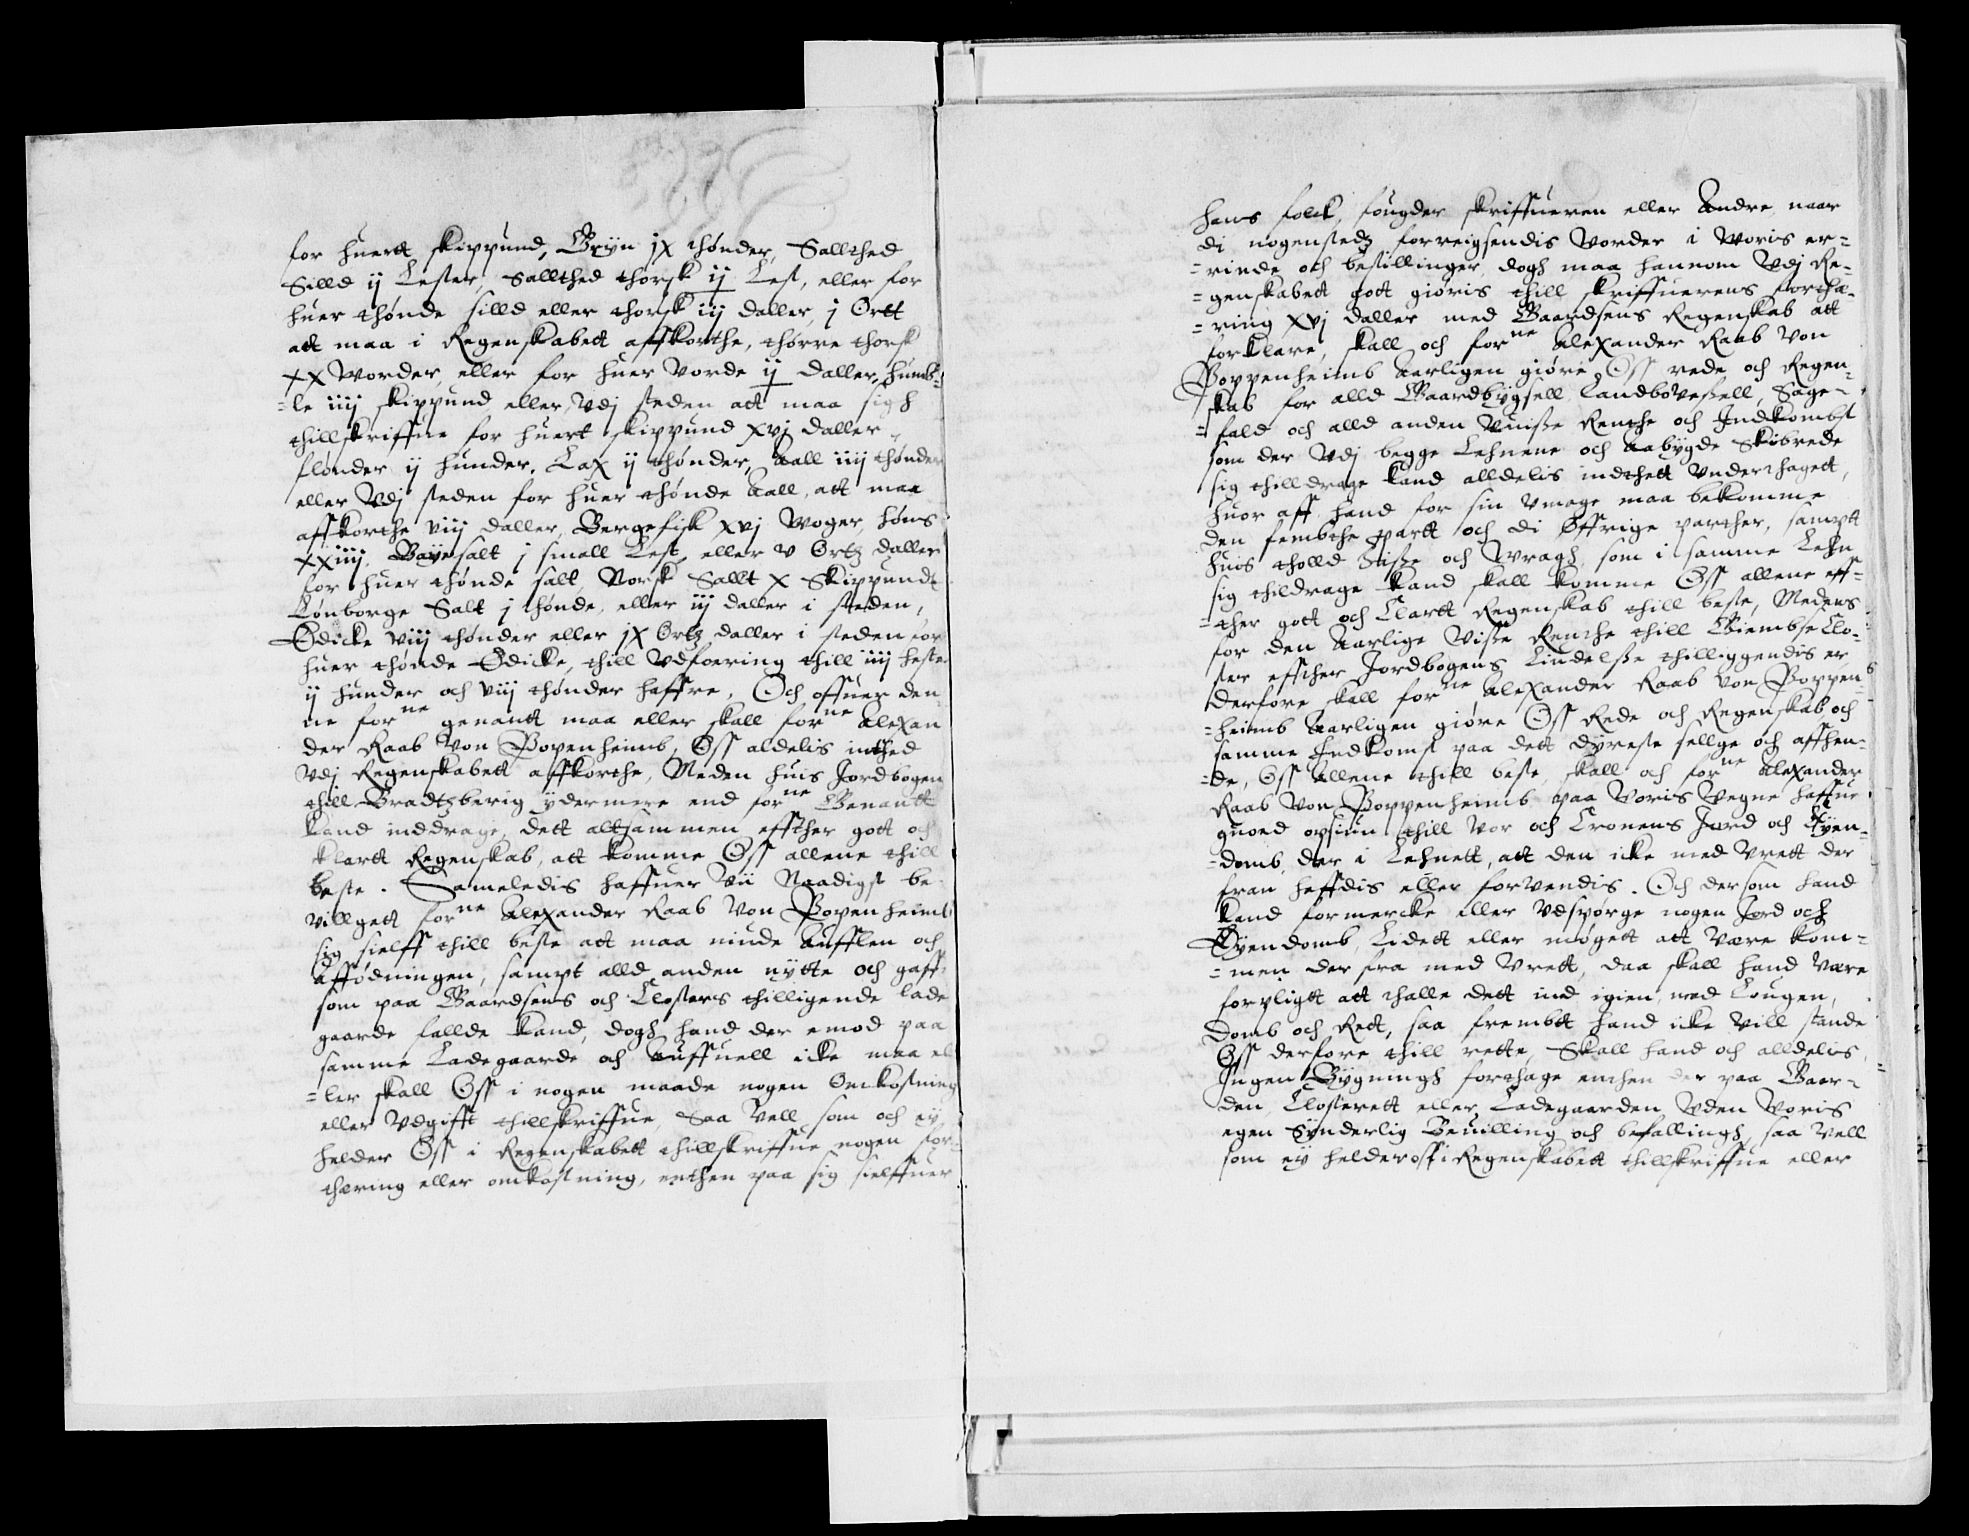 for huertt skippund, Gryn jx thønder, Sallthed
Silld ij Lester, Sallthed thorsk ij Lest, eller for
huer thønde silld eller thorsk iij daller, j Ortt
att maa i Regenskabett affkorthe, thørre thorsk
xx Vorder, eller for huer Vorde ij daller, humb-
=le iiij skippund eller Vdj steden att maa sigh
thillskriffue for huert skippund xvj daller
flønder ij hunder, Lax ij thønder, Aall iiij thønder
eller Vdj steden for huer thønde Aall, att maa
affkorthe viij daller, Bergefisk xvj Woger, høns
xxiiij, Bayesalt j small Lest, eller v Ortz daller
for huer thønde salt, Norsk Sallt x Skippundt
Lønborge Salt j thønde, eller iij daller i steden,
Edicke viij thønder eller jx Ortz daller i steden for
huer thønde Edicke, thill Vdfoering thill iiij heste
ij hunder och viij thønder haffre, Och offuer den-
ne forne genantt maa eller skall forne Alexan
der Raab Von Popenheimb, Oss aldelis inthed
Vdj Regenskabett affkorthe, Meden huis Jordbogen
thill Bradtzberig ydermere end forne Benantt
kand inddrage, dett altsammen effther gott och
klartt Regenskab, att komme Oss allene thill
beste. Sameledis haffuer Vii Naadigst be-
villgett forne Alexander Raab Von Popenheimb
sig sielff thill beste att maa niude Aufflen och
Affødningen, sampt alld anden nytte och gaffn
som paa Gaardsens och Closters thilligende lade
gaarde fallde kand, dogh hand der emod paa
samme Ladegaarde och Auffuell icke maa el
=ler skall Oss i nogen maade nogen Omkostning
eller Vdgifft thillskriffue, Saa Vell som och ey
helder Oss i Regenskabett thillskriffue nogen for-
thæring eller omkostning, enthen paa sig sielffuer
hans folck, fougder skriffueren eller Andre, naar
di nogenstedz forreigsendis Vorder i Woris er-
=rinde och bestillinger, dogh maa hannom Vdj Re-
=genskabett gott giøris thill skriffuerens forthæ-
=ring xvj daller med Gaardsens Regenskab att
forklare, skall och forne Alexander Raab Von
Poppenheimb Aarligen giøre Oss rede och Regen-
skab for alld Gaardbygsell, Landboveßell, Sage-
=fald och alld anden Vuiße Renthe och Indkombst
som der Vdj begge Lehnene och Aabygde Skibrede
sig thilldrage kand alldelis indthett Vnderthagett,
huor aff hand for sin Vmage maa bekomme
den fembthe partt och di Øffrige parther, sampt
huis tholld Siße och Wragh, som i samme Lehn
sig thildrage kand skall komme Oss allene eff-
=ther gott och Clartt Regenskab thill beste, Medens
for den Aarlige Viße Renthe thill Giembsø Clo-
ster effther Jordbogens Liudelße thilliggendis er,
derfore skall forne Alexander Raab Von Poppen-
=heimb Aarligen giøre Oss Rede och Regenskab och
samme Indkomst paa dett dyreste sellge och affhen-
=de, Oss Allene thill beste, skall och forne Alexander
Raab Von Poppenheimb paa Voris Vegne haffue
guoed opsiun thill Vor och Cronens Jord och Eyen-
=domb, der i Lehnett, att den icke med Vrett der
fran heffdis eller forvendis. Och dersom hand
kand formercke eller Vdspørge nogen Jord och
Eyendomb, Lidett eller møgett att Være kom-
=men der fra med Vrett, daa skall hand Være
forpligtt att thalle dett ind igien, med Lougen,
Domb och Rett, saa frembtt hand icke Vill stande
Oss derfore thill rette, Skall hand och alldelis
Ingen Bygningh forthage enthen der paa Gaar-
den Closterett eller Ladegaarden Vden Voris
egen Synderlig Beuilling och befallingh, saa Vell
som ey helder oss i Regenskabett thillskriffue eller